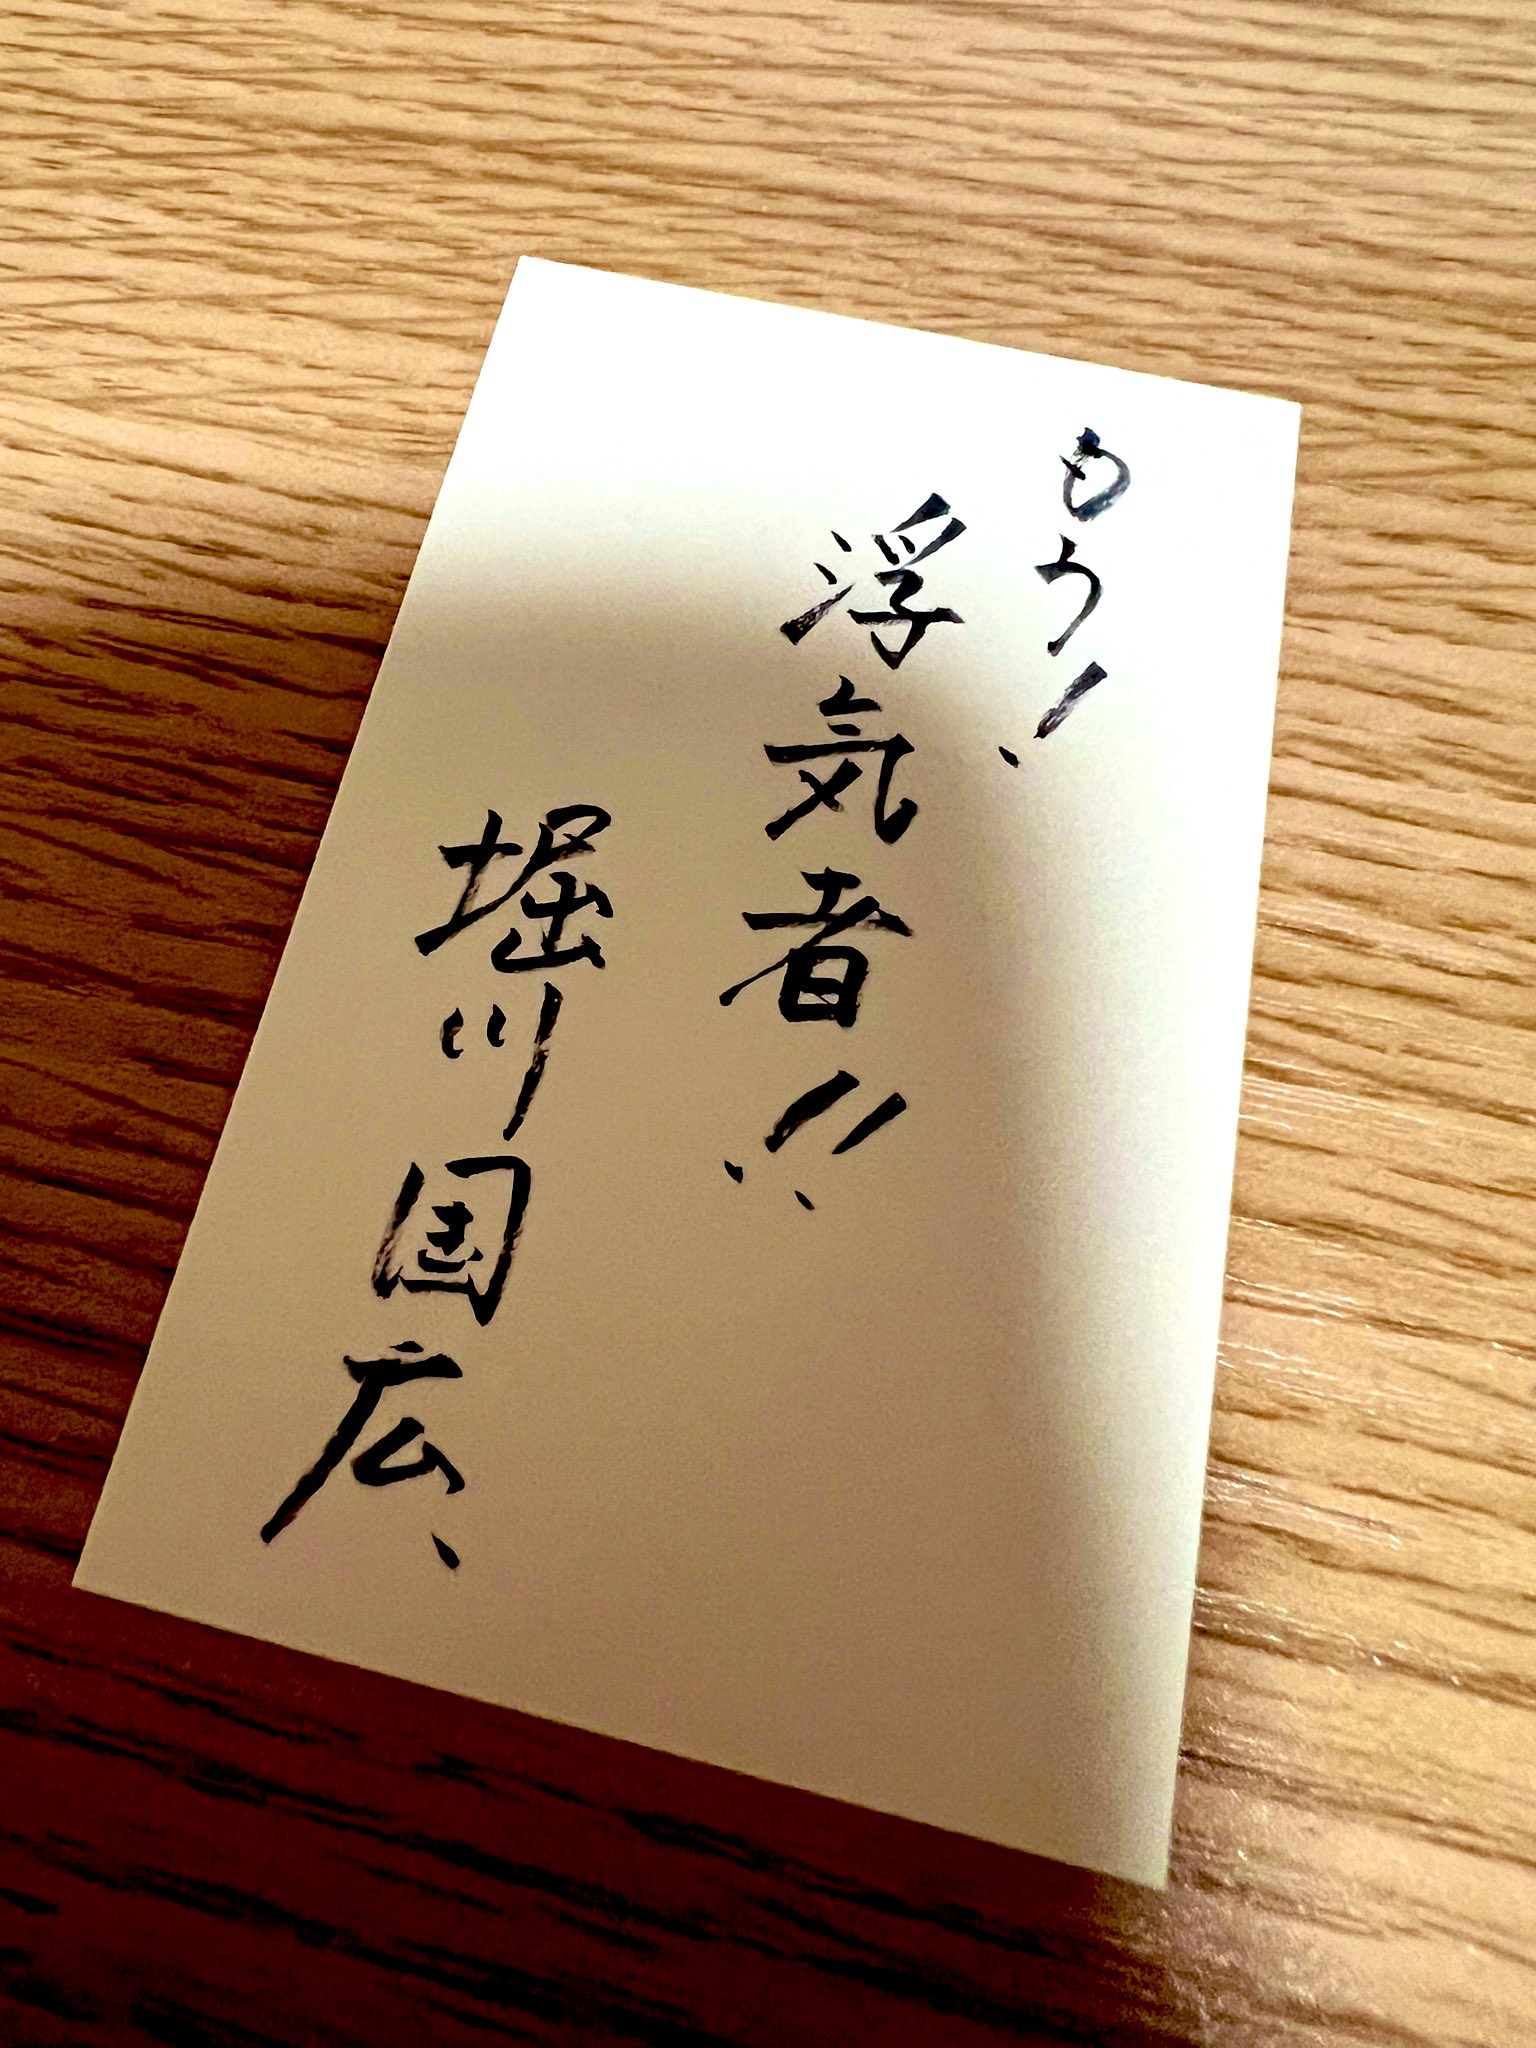 もう!
浮気者!!
堀川国広、